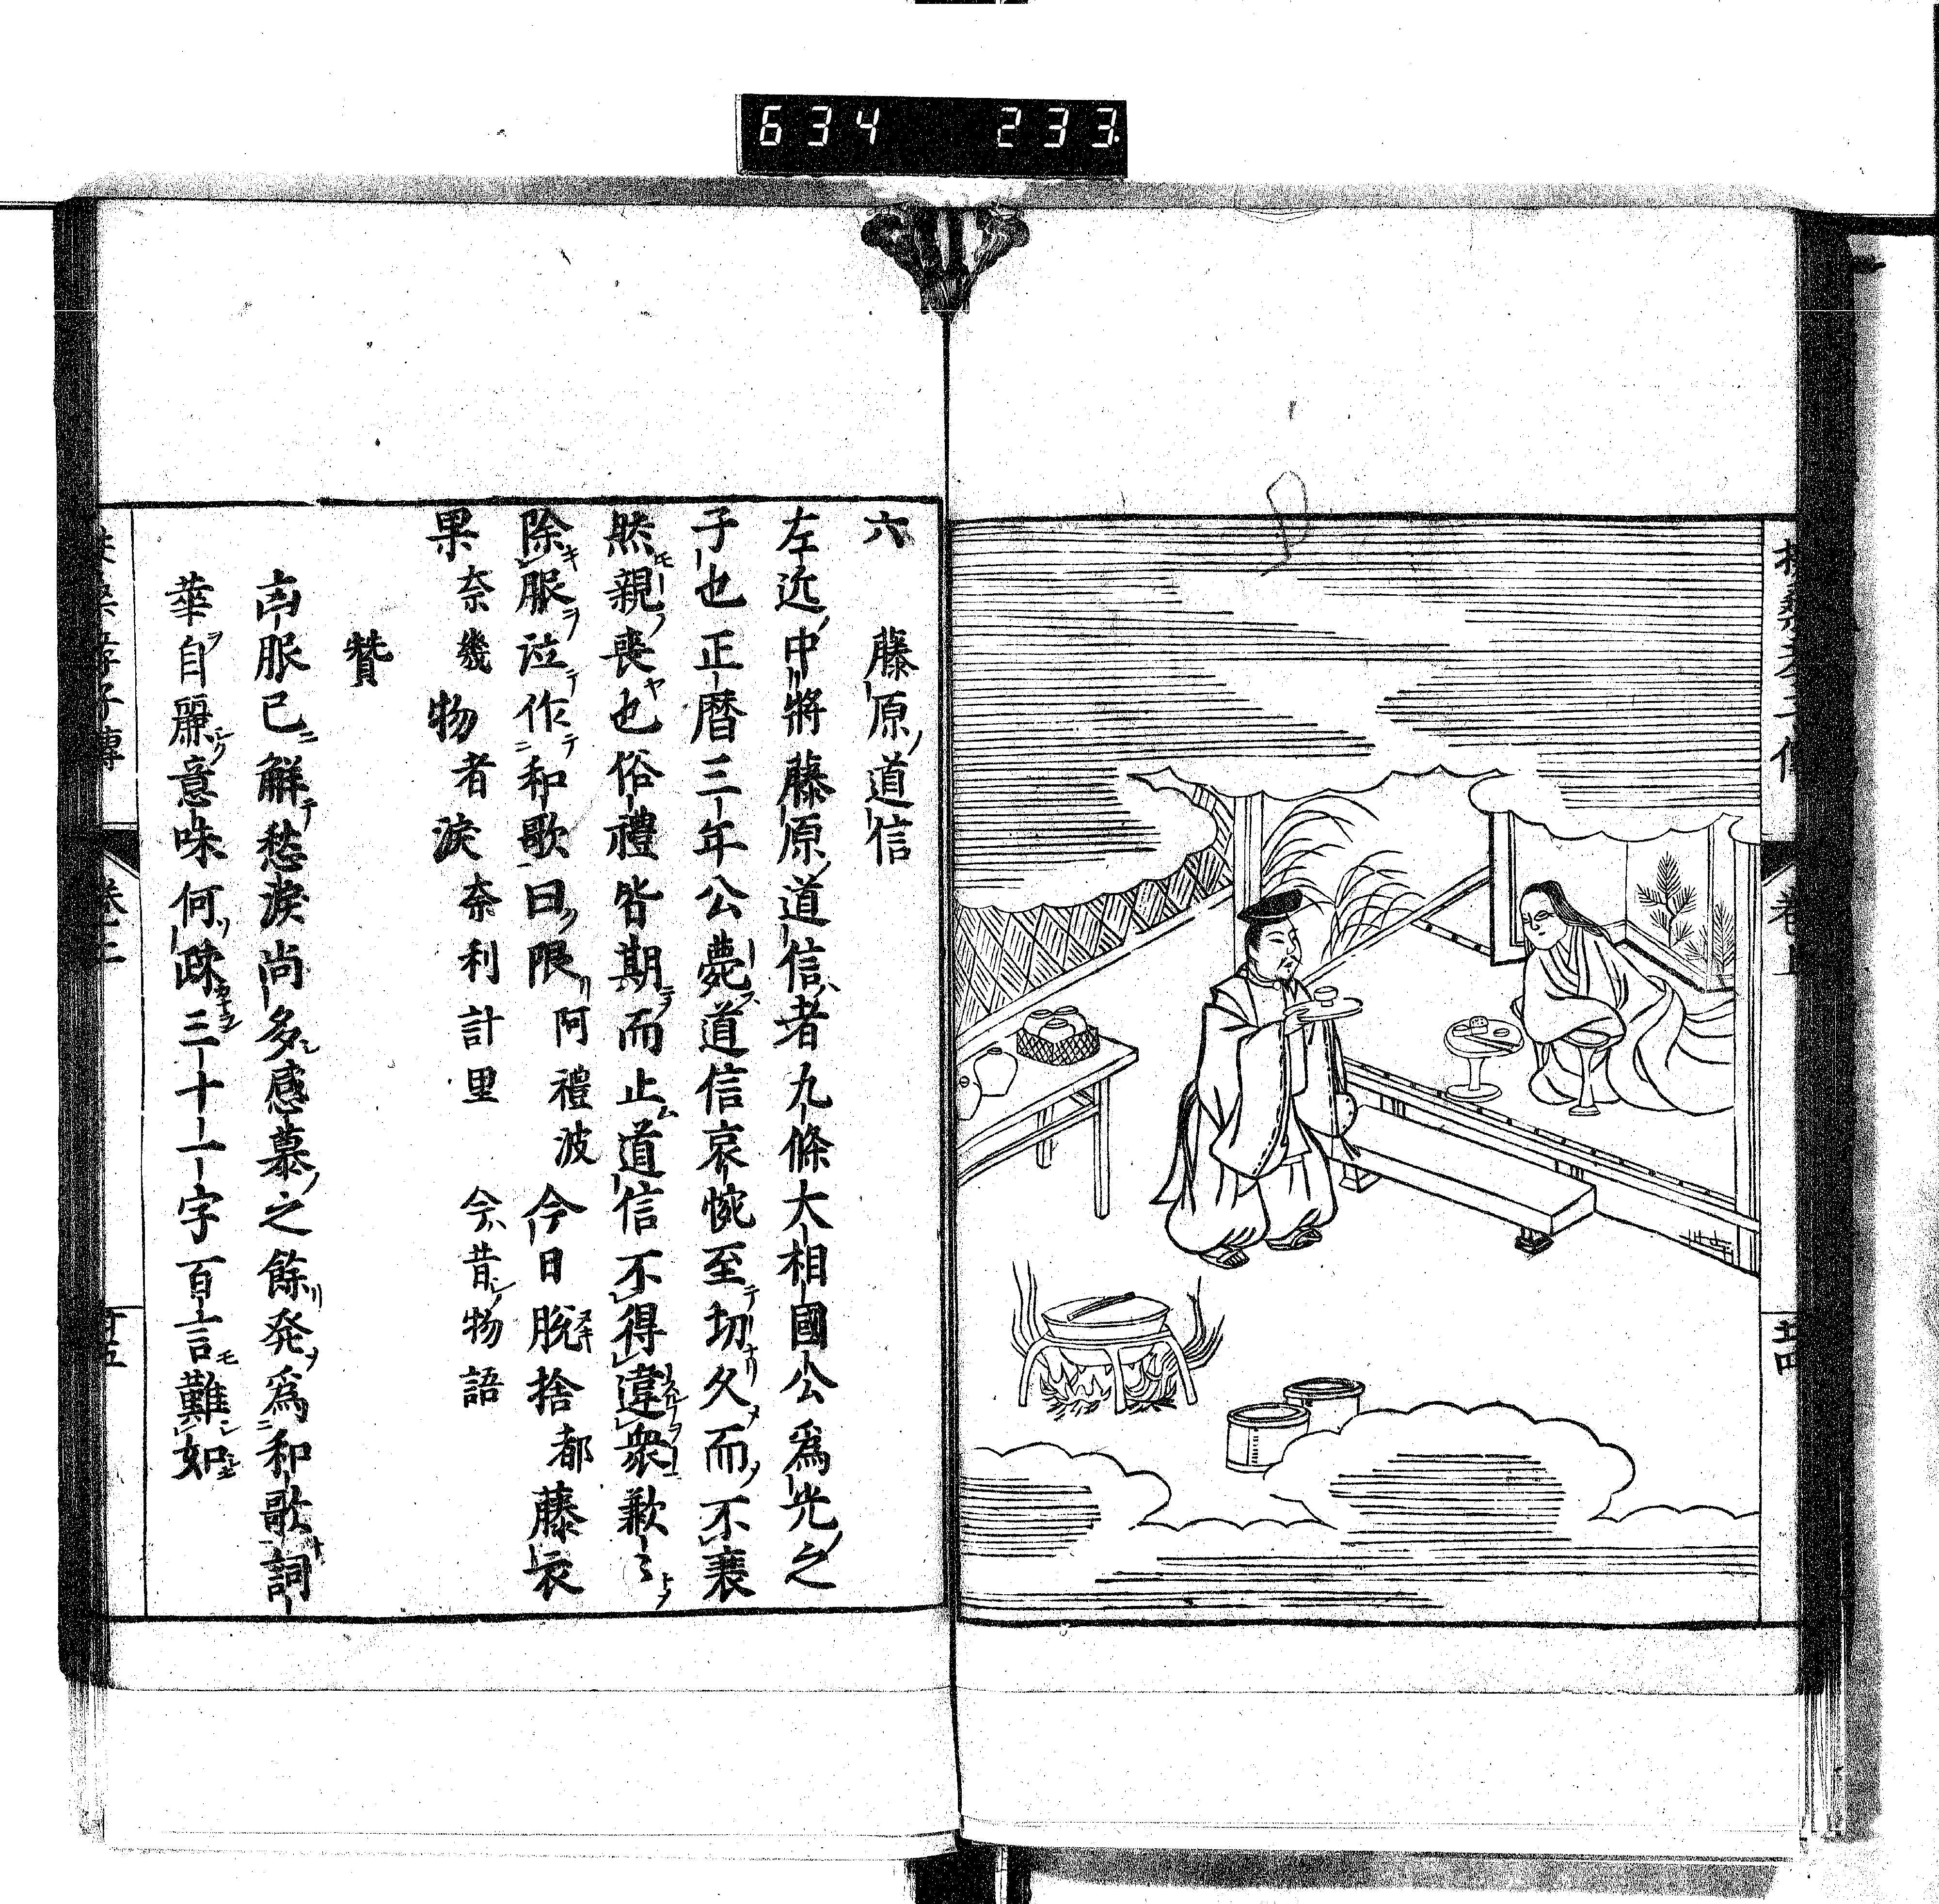 634 233
六 藤原道信
左近中將藤原道信者九條大相國公爲光之
子也正暦三年公薨道信哀惋至切久而不衰
然親喪也俗禮皆期而止道信不得違衆歉々
除服泣作和歌曰限阿禮波今日脫捨都藤衣
果奈幾物者淚奈利計里 今昔物語
賛
凶服已解愁淚尚多感慕之餘発爲和歌詞
華自麗意味何疎三十一字百言難如
卷上
廿四